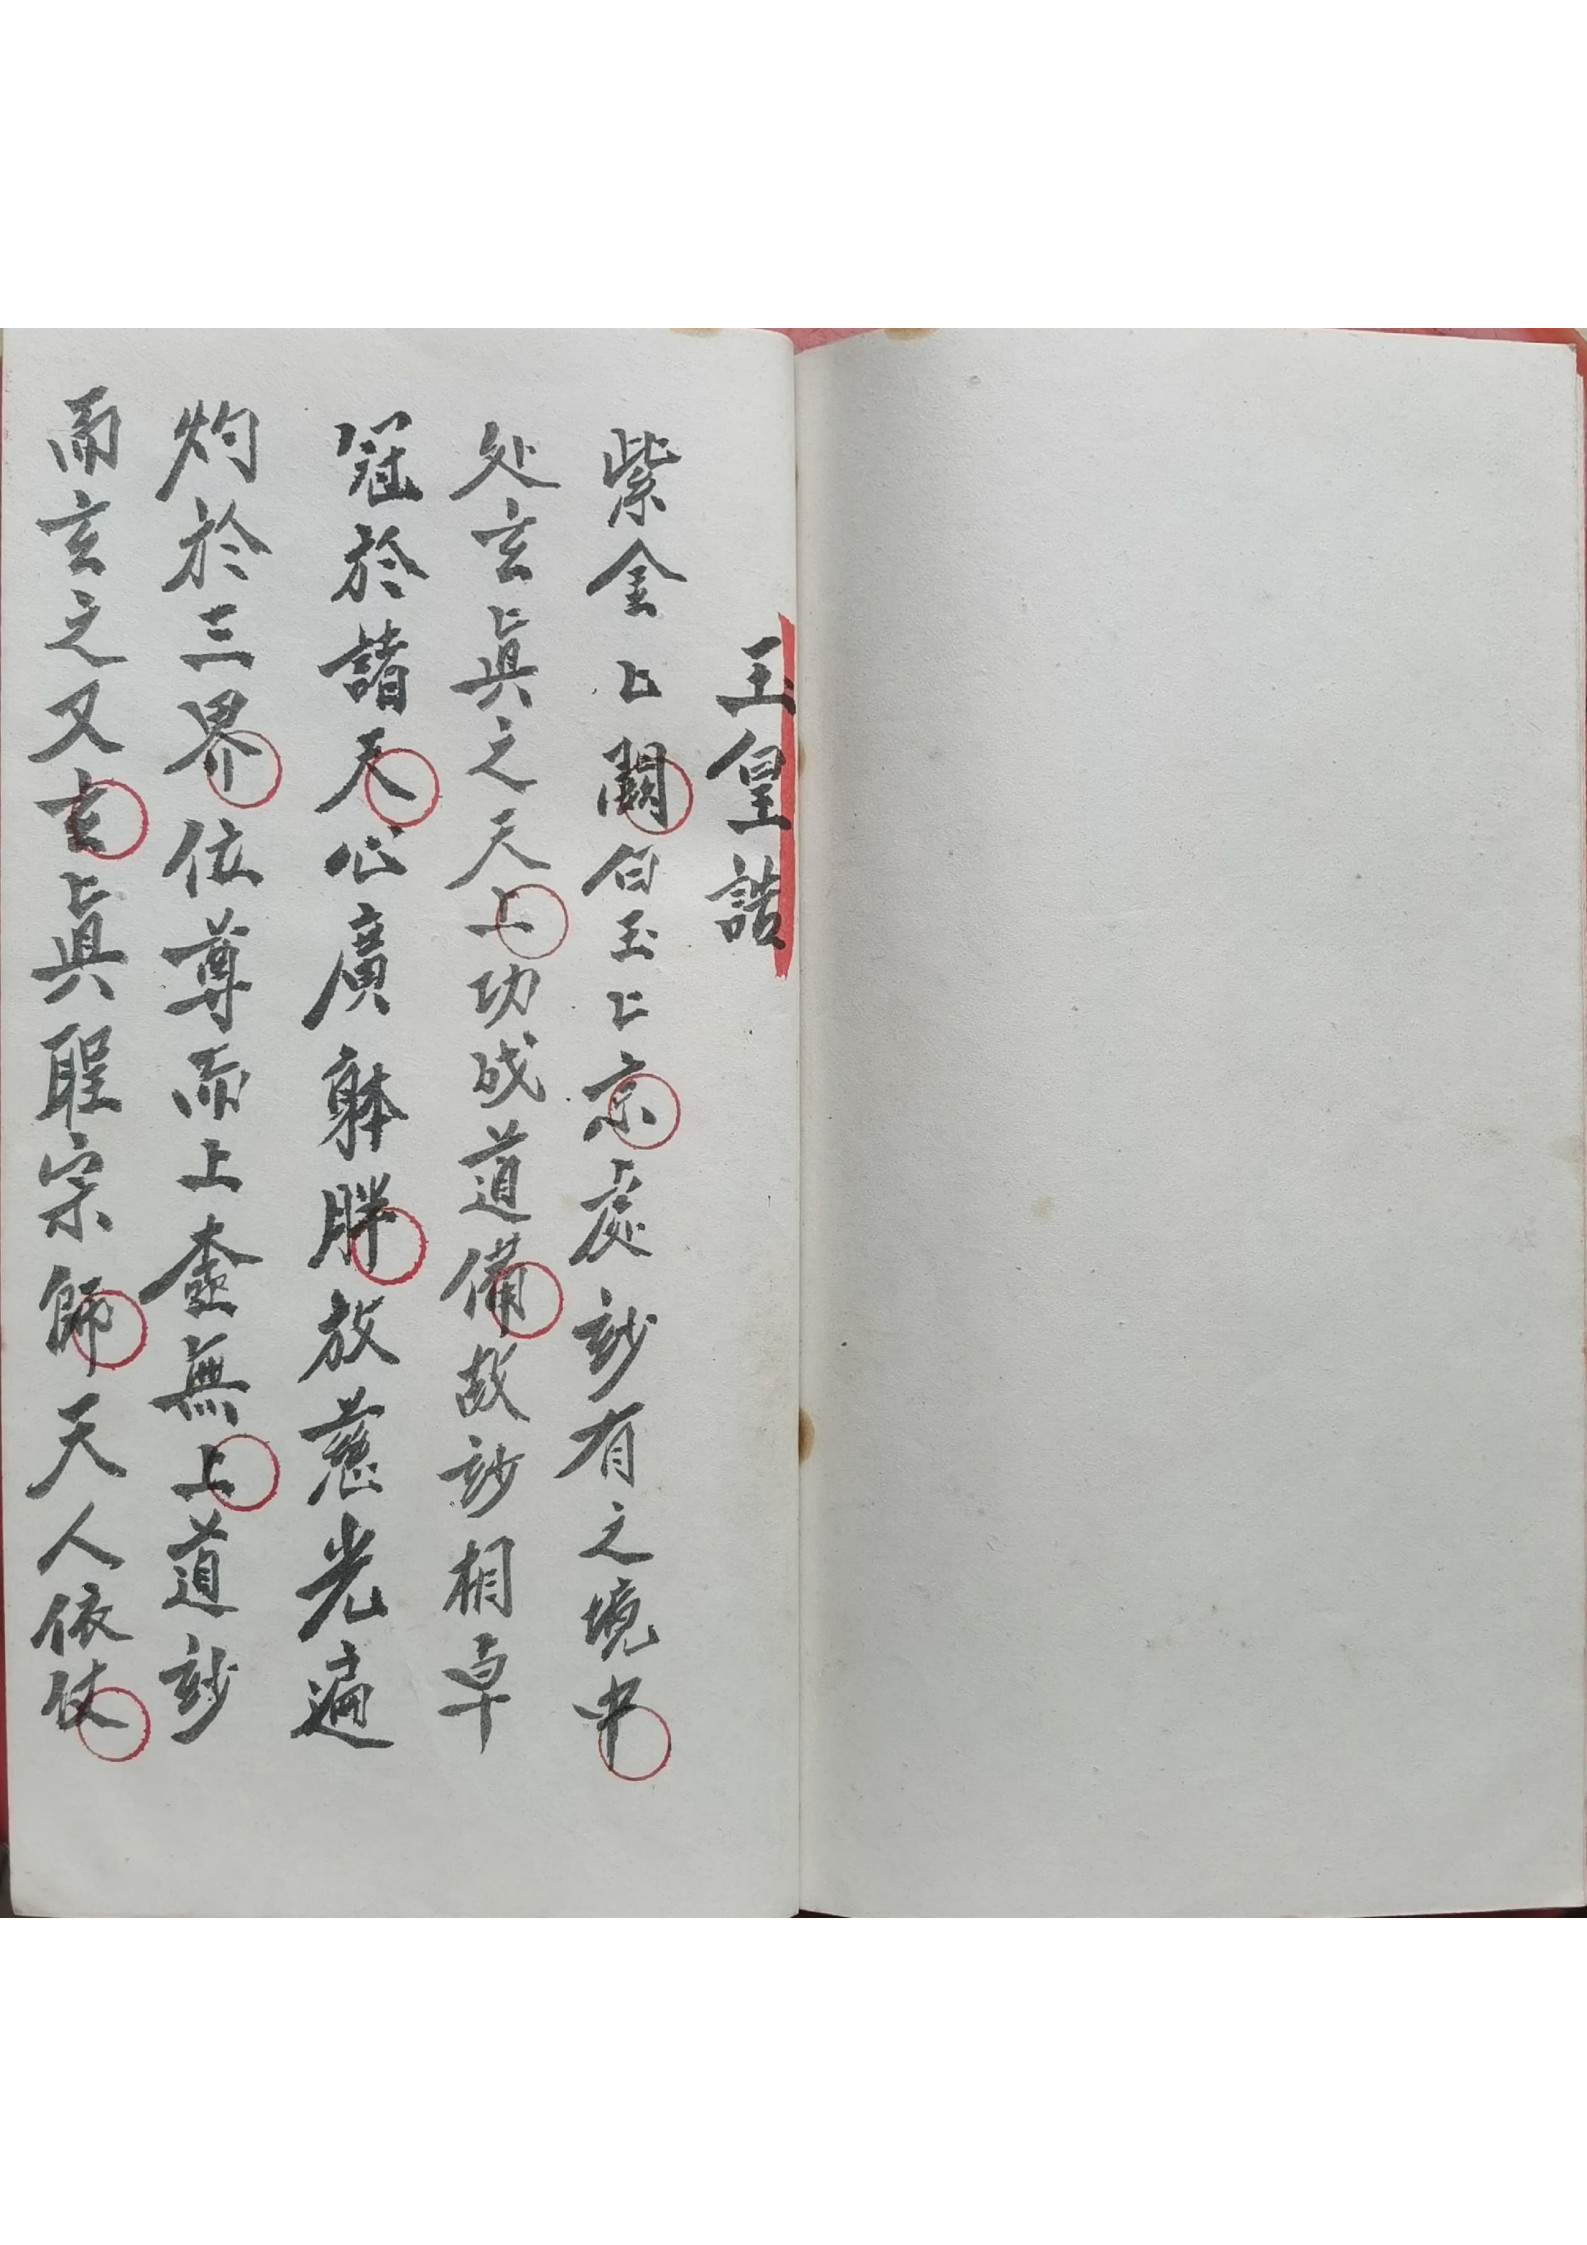 玉皇誥
紫金上闕白玉上京處玅有之境中
处玄眞之天上功成道備故玅相卓
冠於諸天心廣躰胖放慈光遍
灼於三界位尊而上無上道玅
而玄之又玄眞聖宗師天人依仗